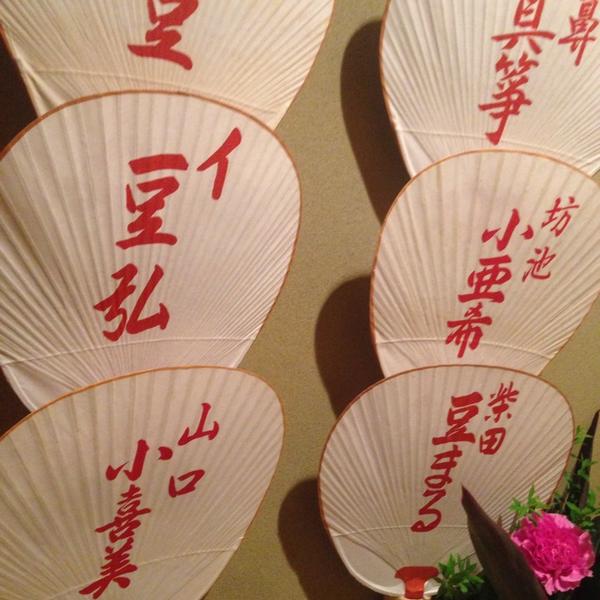 イ
豆弘
坊池
小亜希
山口
小喜美
柴田
豆まる